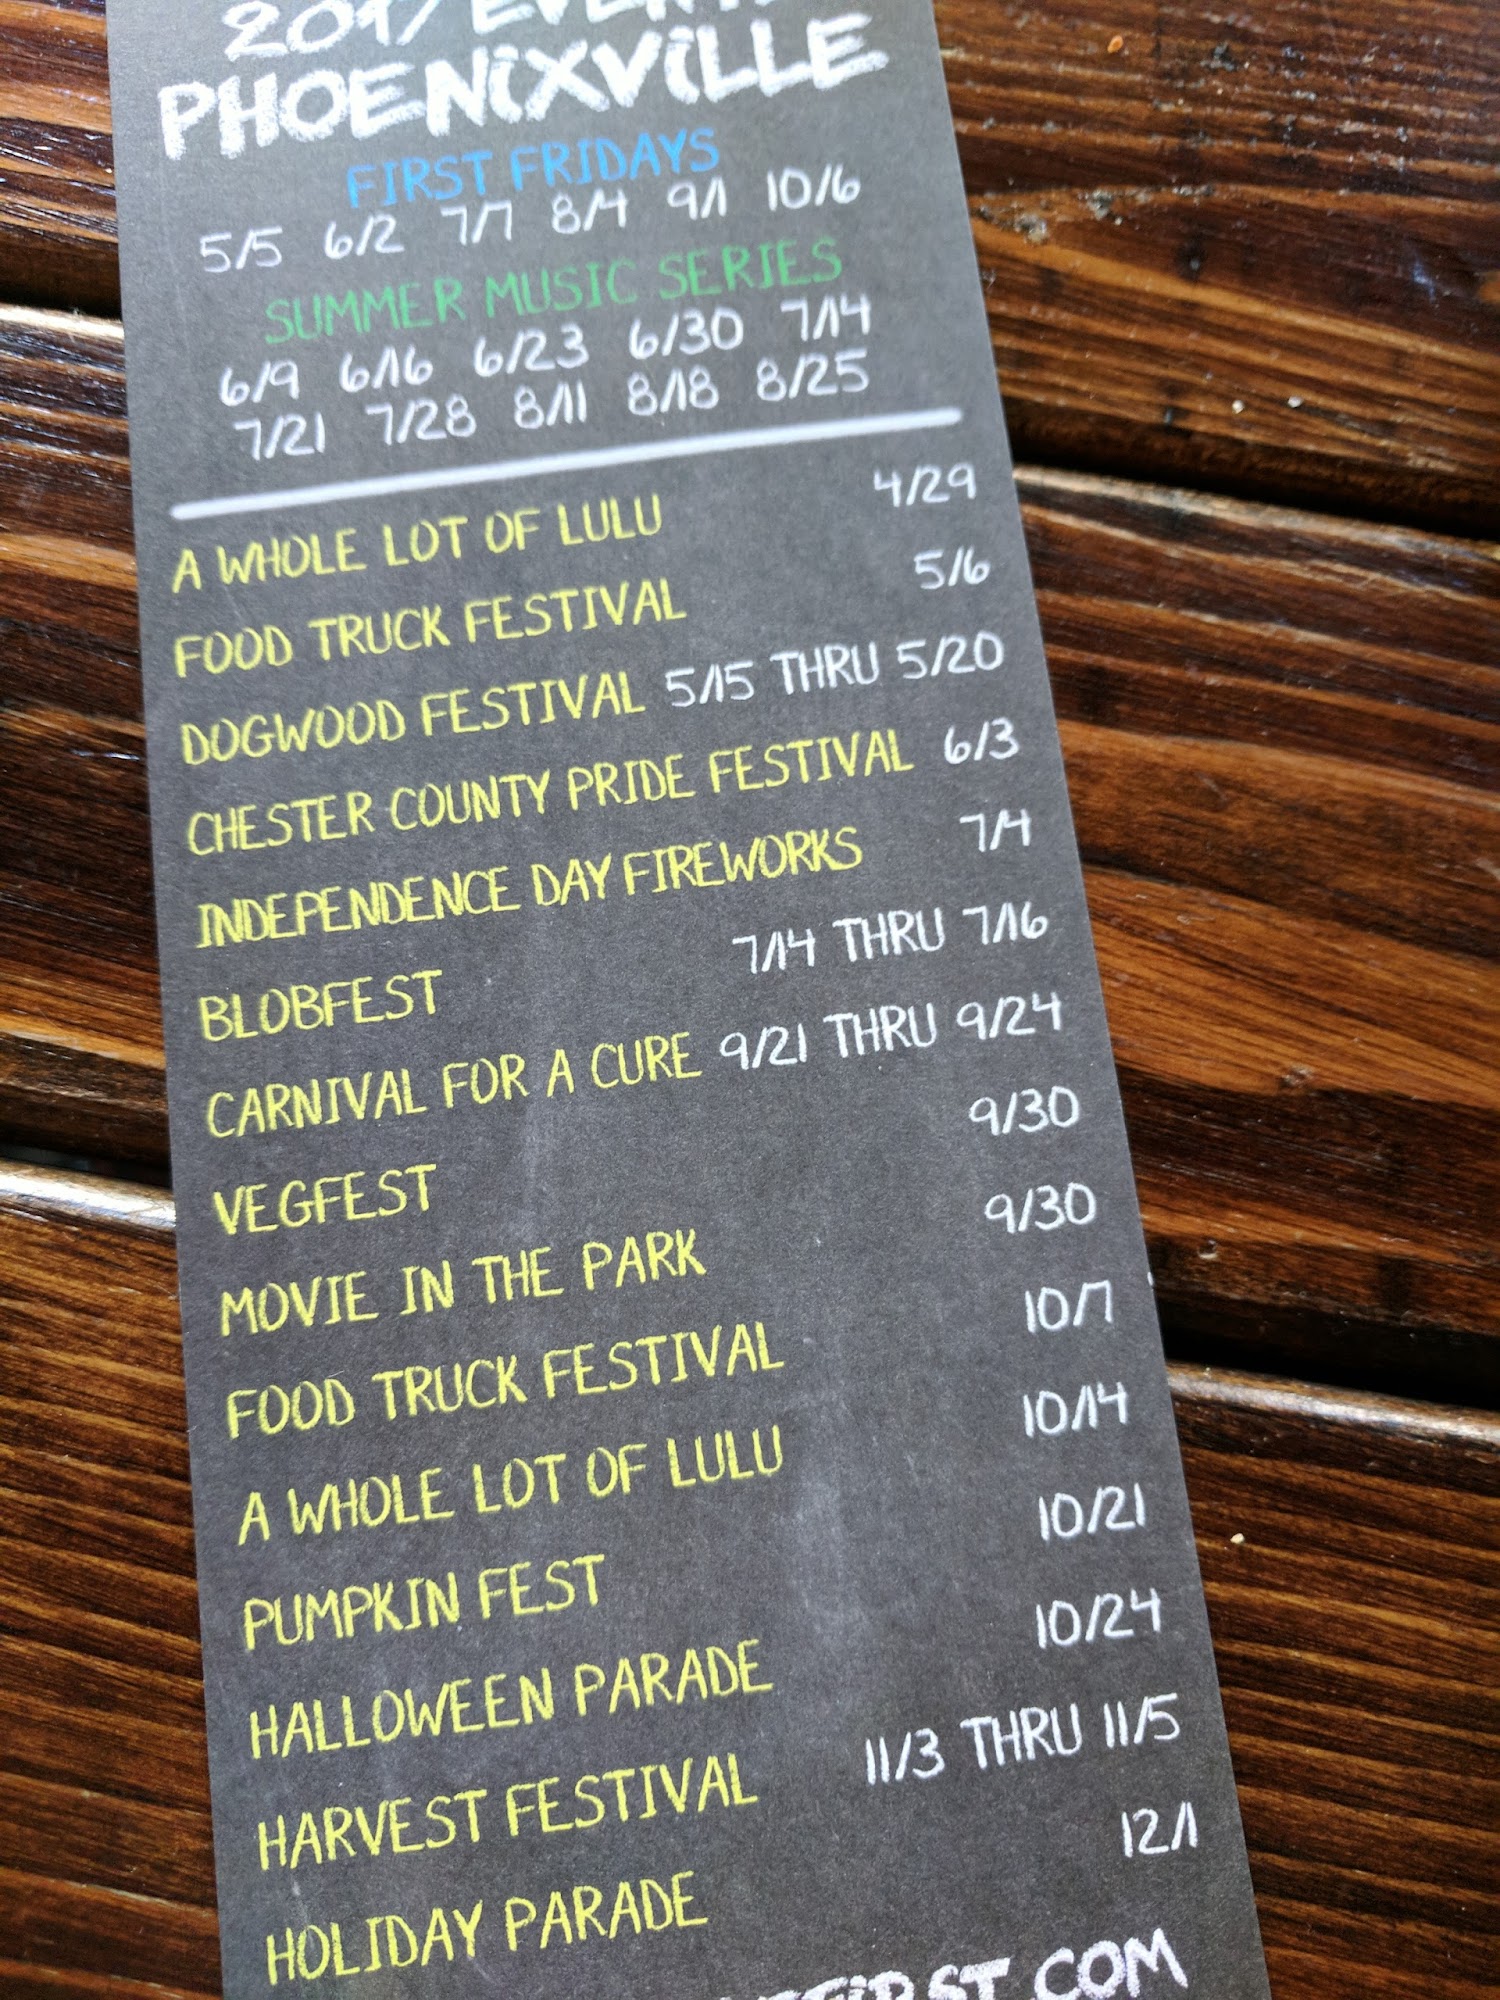 2017 EVENTS
PHOENIXVILLE
FIRST FRIDAYS
5/5 6/2 7/7 8/4 9/1 10/6
SUMMER MUSIC SERIES
6/9 6/16 6/23 6/30 7/14
7/21 7/28 8/11 8/18 8/25
A WHOLE LOT OF LULU 4/29
FOOD TRUCK FESTIVAL 5/6
DOGWOOD FESTIVAL 5/15 THRU 5/20
CHESTER COUNTY PRIDE FESTIVAL 6/3
INDEPENDENCE DAY FIREWORKS 7/4
BLOBFEST 7/14 THRU 7/16
CARNIVAL FOR A CURE 9/21 THRU 9/24
VEGFEST 9/30
MOVIE IN THE PARK 9/30
FOOD TRUCK FESTIVAL 10/7
A WHOLE LOT OF LULU 10/14
PUMPKIN FEST 10/21
HALLOWEEN PARADE 10/24
HARVEST FESTIVAL 11/3 THRU 11/5
HOLIDAY PARADE 12/1